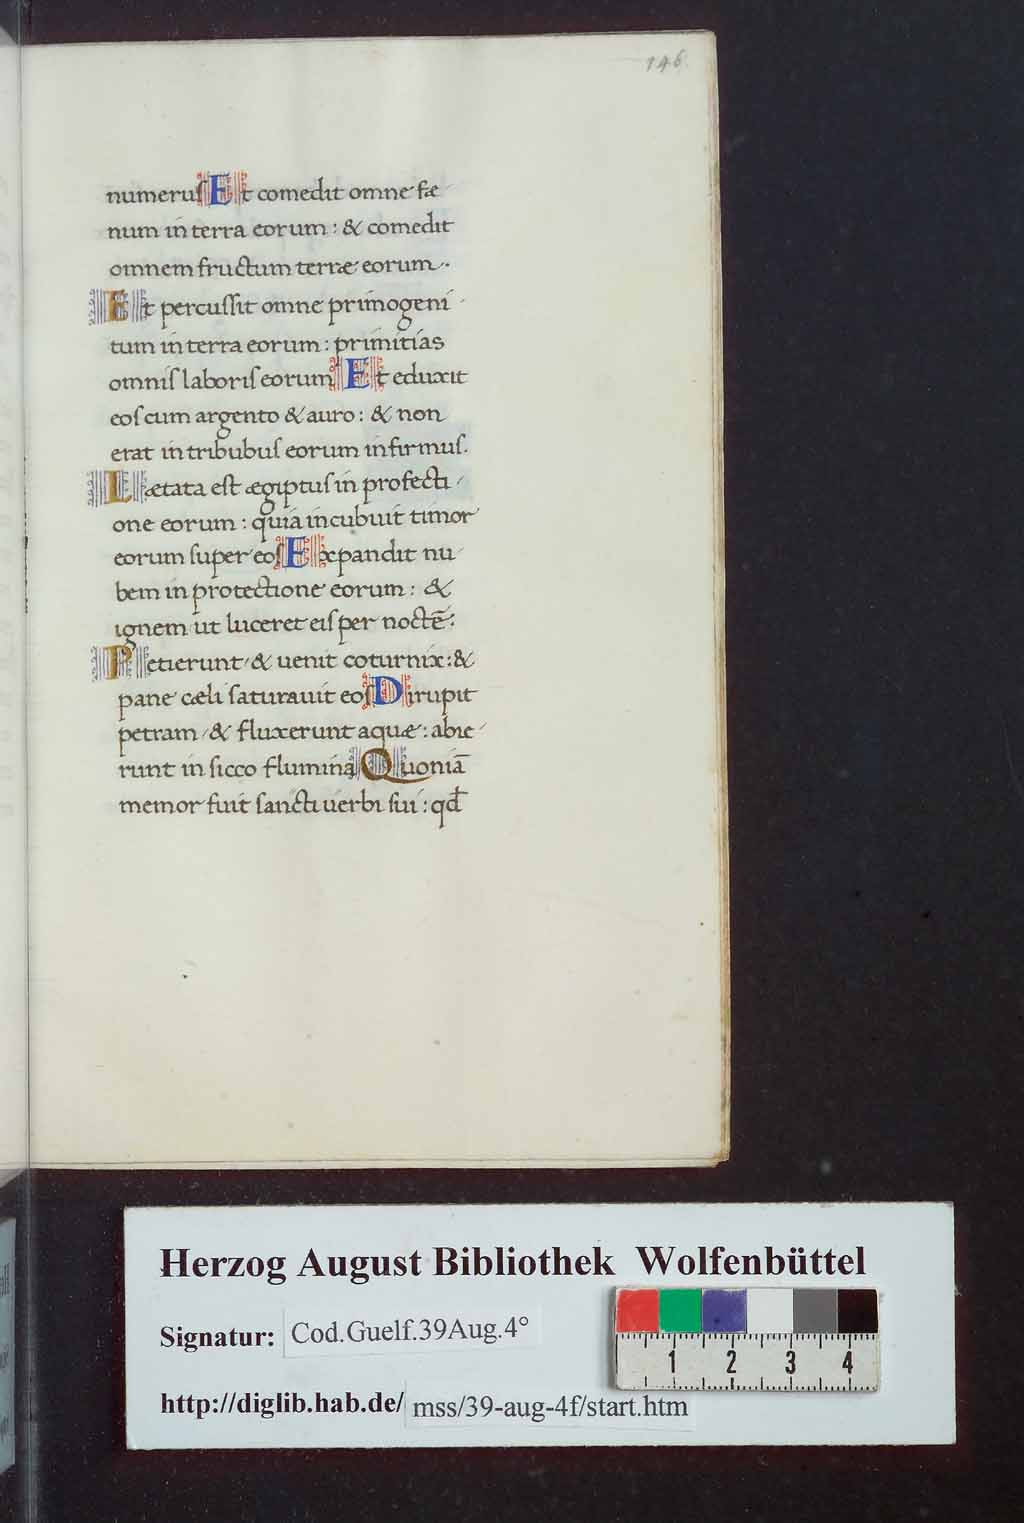 146.
numeruſ Et comedit omne fæ
num in terra eorum : & comedit
omnem fructum terræ eorum ..
Et percuſſit omne primogeni
tum in terra eorum : primitias
omniſ laboriſ eorum Et eduxit
eoſ cum argento & auro : & non
erat in tribubuſ eorum infirmuſ.
Lætata eſt ægiptuſ in profecti
one eorum : quia incubuit timor
eorum ſuper eoſ Expandit nu
bem in protectione eorum : &
ignem ut luceret eiſ per noctē :
Petierunt & uenit coturnix : &
pane cæli ſaturauit eoſ Dirupit
petram & fluxerunt aquæ : abie
runt in ſicco flumina Quoniā
memor fuit ſancti uerbi ſui : qđ
Herzog August Bibliothek Wolfenbüttel
Signatur: Cod.Guelf.39Aug.4°
1 2 3 4
http://diglib.hab.de/ mss/39-aug-4f/start.htm